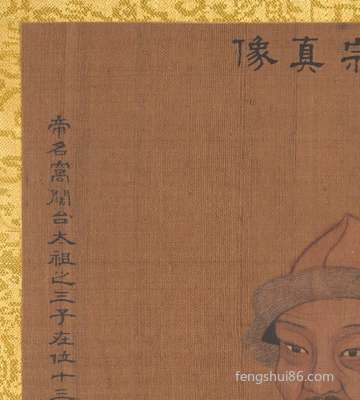 宗真像
帝名窩闊台太祖之三子在位十三
fengshui86.com